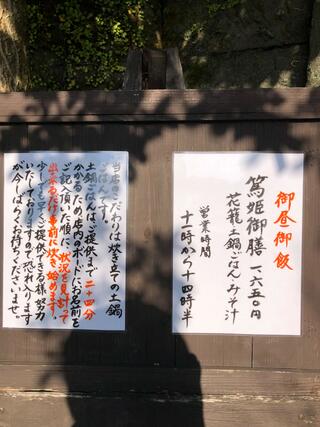 御昼御飯
篤姫御膳 一、六五〇円
花籠 土鍋ごはん みそ汁
営業時間
十一時から十四時半
当店のこだわりは炊き立ての土鍋
ごはんです。
土鍋ごはんはご提供まで二十四分
かかるため店内のボードにお名前を
ご記入頂いた順に、状況を見計って
出来るだけ事前に炊き始めます。
少しでも早くご提供できる様 努力
いたしておりますので、恐れ入ります
が今しばらくお待ちくださいませ。